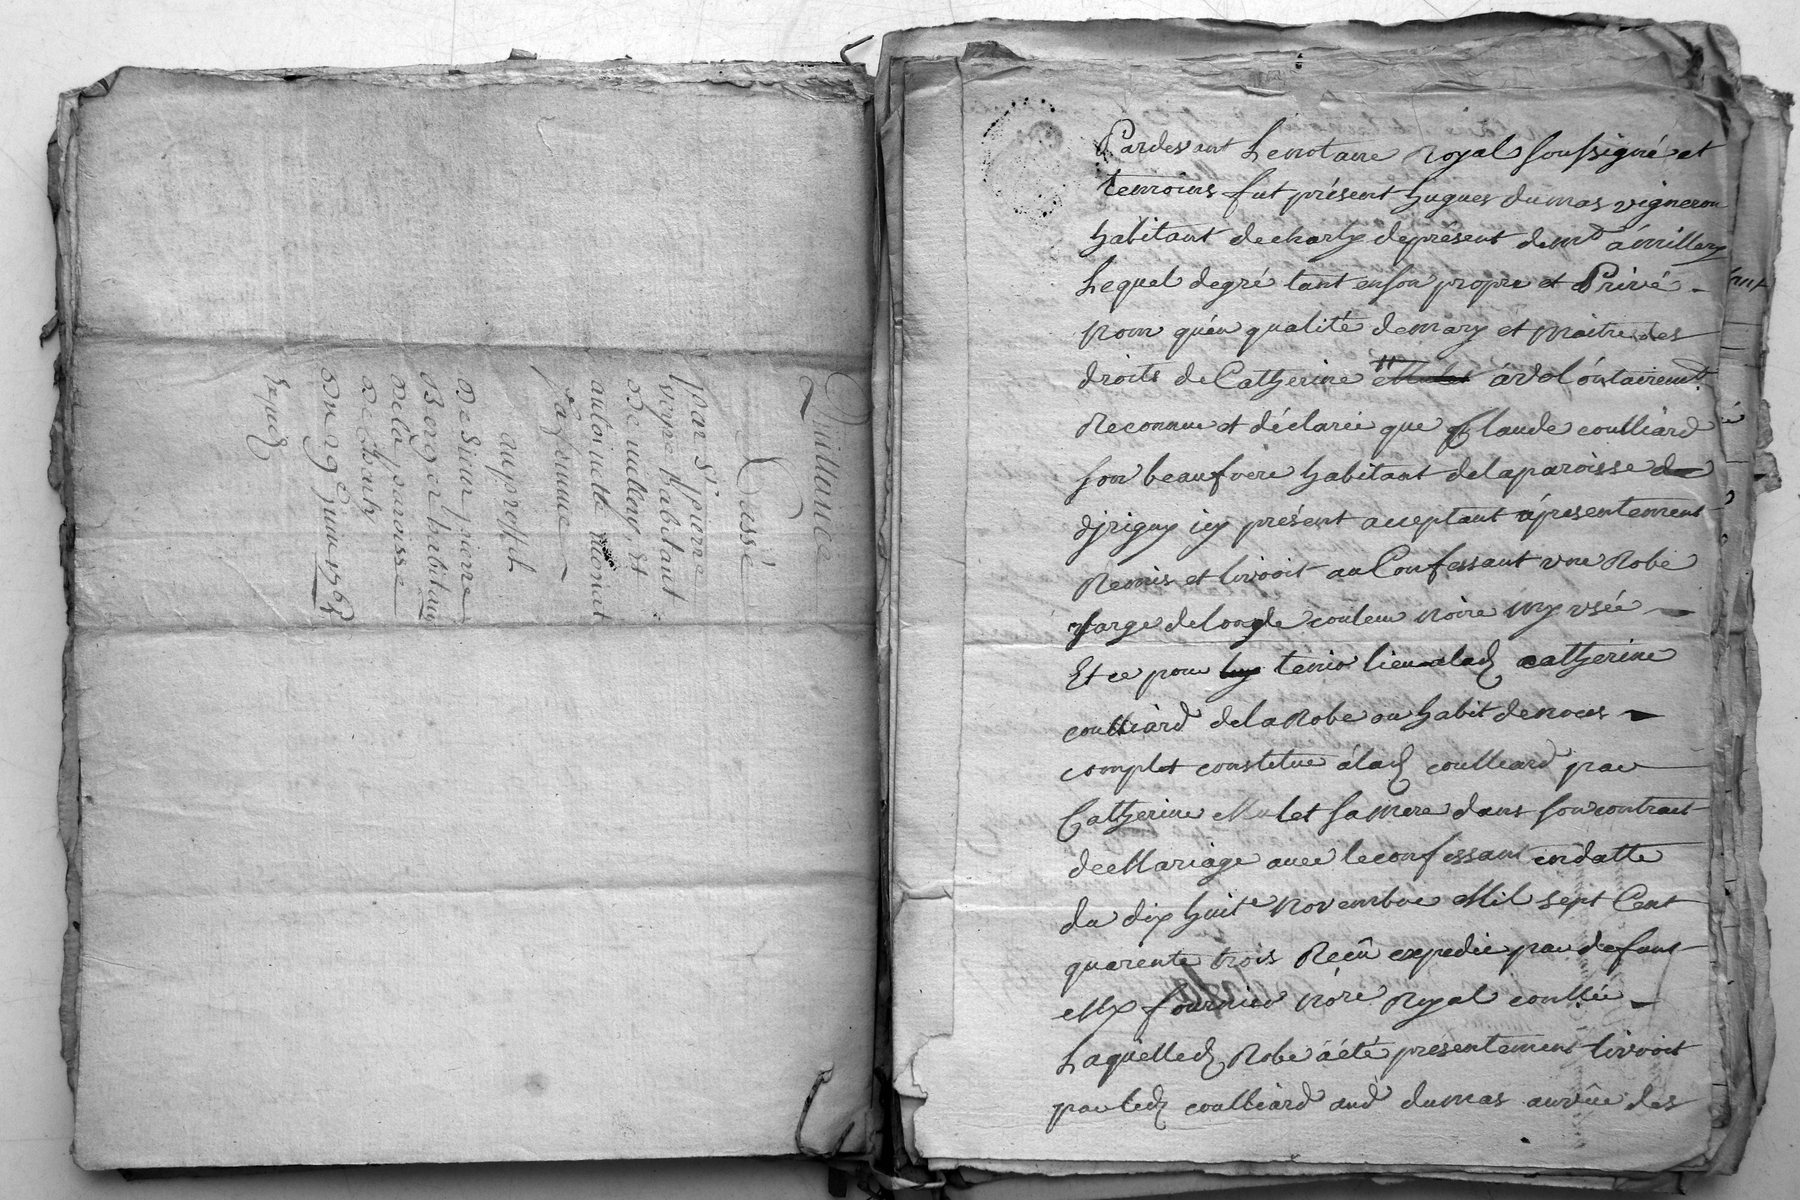 Quittance
Passé
par Sr pierre
voyre habitant
de millery, Et
antoinette monat
sa femme
au proffit
de Sieur pierre
Berger habitant
de la paroisse
de Charly
du 29e Juin 1763
Expedz
Pardevant Le notaire Royal soussigné et
temoins fut présent hugues dumas vigneron
habitant de charly de présent demt á millery
Lequel de gré tant en son propre et Privé
Nom qu'en qualité de mary et maitre des
droits de Catherine Mulet a volontairemt
Reconnu et déclaré que Claude coulliard
son beaufrere habitant de la paroisse de
d'jrigny icy présent acceptant á présentement
Remis et livré au Confessant vne Robe
sarge de londe couleur noire my vsée
Et ce pour luy tenir lieu alad catherine
coulliard de la Robe ou habit de noces
complet constitué á lad coulliard par
Catherine Mulet sa mere dans son contract
de Mariage avec le confessant en datte
du dix huite Novembre Mil sept Cent
quarente trois Reçû expedié par defunt
Me fournier Nore Royal
Laquelle d Robe á été présentement livré
par led coulliard aud dumas au vûe des